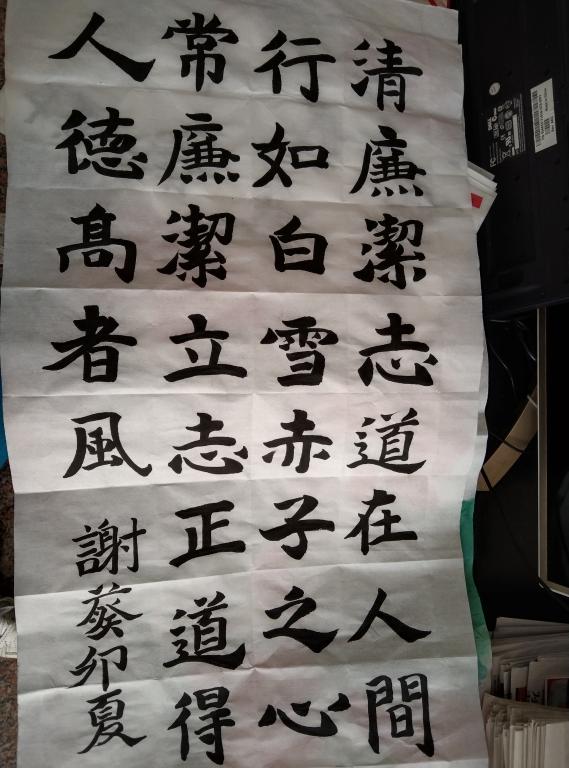 清廉潔志道在人間
行如白雪赤子之心
常廉潔立志正道得
人德高者風
謝葵卯夏